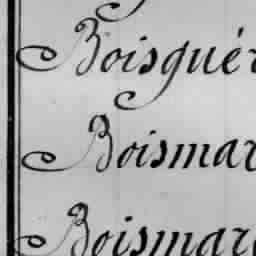 Boisguér
Boismar
Boismare